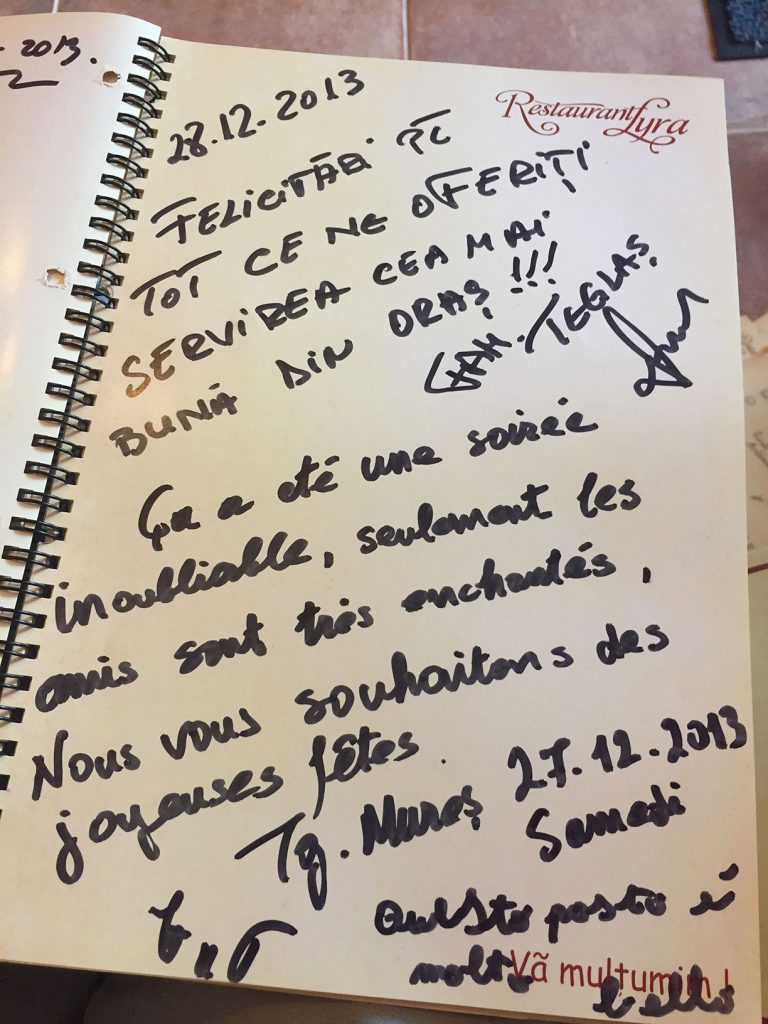 2013.
28.12.2013
Restaurant Lyra
FELICITĂRI PT
TOT CE NE OFERIȚI
SERVIREA CEA MAI
BUNĂ DIN ORAȘ!!!
FAM. TEGLAȘ
Ça a été une soirée
inoubliable, seulement les
amis sont très enchantés,
Nous vous souhaitons des
joyeuses fêtes.
Tg. Mureș 27.12.2013
Samedi
Questo posto è
molto bello
Vă multumim!